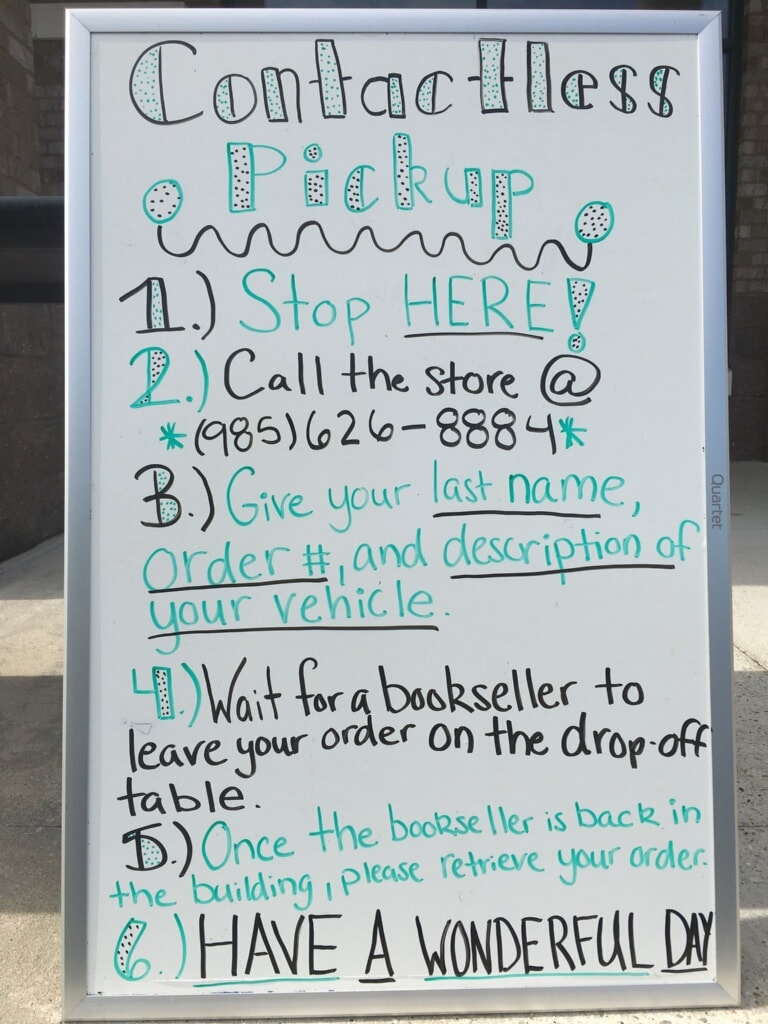 Contactless
Pickup
1.) Stop HERE!
2.) Call the store @
*(985)626-8884*
3.) Give your last name,
order #, and description of
your vehicle.
4.) Wait for a bookseller to
leave your order on the drop-off
table.
5.) Once the bookseller is back in
the building, please retrieve your order.
6.) HAVE A WONDERFUL DAY
Quartet